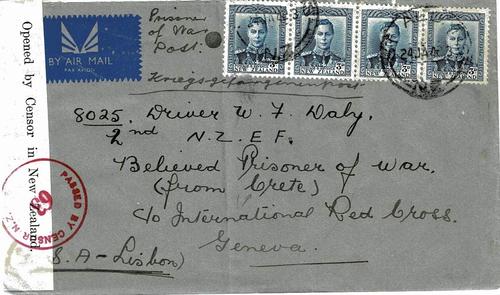 Opened by Censor in New Zealand.
BY AIR MAIL
PAR AVION
Prisoner
of War
Post.
Kriegsgefangenenpost
NEW ZEALAND
NEW ZEALAND
NEW ZEALAND
NEW ZEALAND
N.Z.
8025. Driver W. F. Daly.
2nd N.Z.E.F.
Believed Prisoner of War.
(from Crete)
c/o International Red Cross.
Geneva.
S.A - Lisbon)
PASSED BY CENSOR N.Z.
93